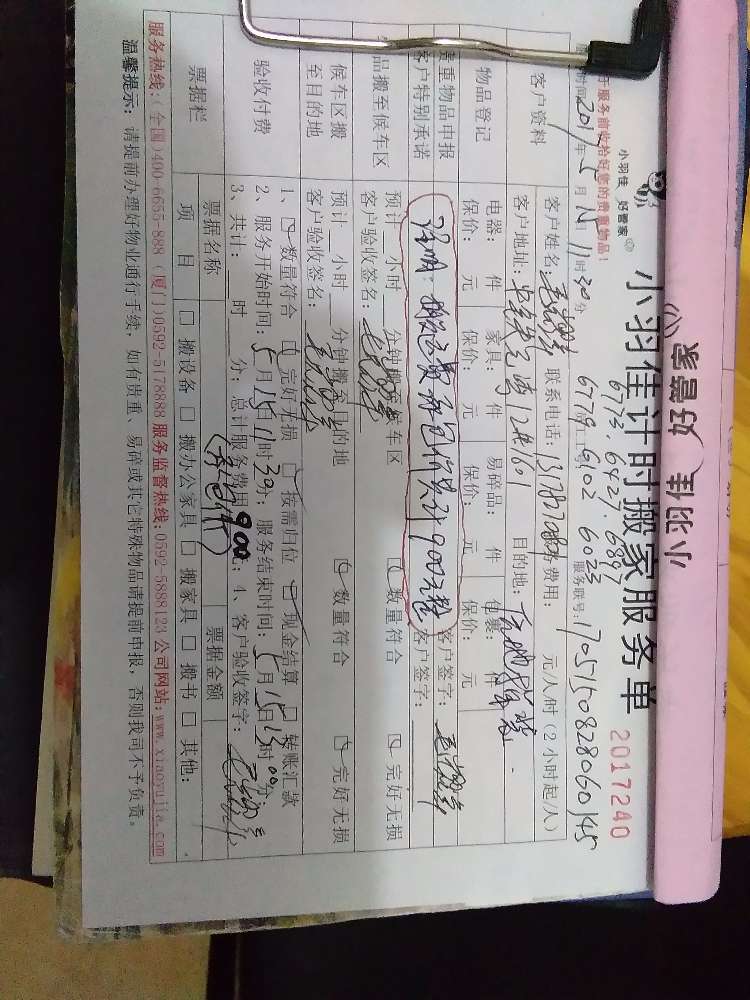 家管好 佳羽小
小羽佳 好管家
小羽佳计时搬家服务单
2017240
开服务前收拾好您的贵重物品!
6773. 6427. 6897
6779 6102 6023
服务联号: 1705150828060145
时间2017年5月15日11时30分
客户资料
客户姓名:
联系电话:
费用: 元/人/时(2小时起/人)
客户地址:
12#1601
目的地:
物品登记
电器: 件 家具: 件 易碎品: 件 包裹: 件
保价: 元 保价: 元 保价: 元 保价: 元
贵重物品申报
客户特别承诺
注明: 搬运费承包价共计900元整
客户签字:
客户签字:
品搬至候车区
预计 小时 分钟搬至候车区 数量符合 完好无损
客户验收签名:
候车区搬
至目的地
预计 小时 分钟搬至目的地 数量符合 完好无损
客户验收签名:
验收付费
1、 数量符合 完好无损 按需归位 现金结算 转账汇款
2、服务开始时间: 5月15日11时30分; 服务结束时间: 5月15日13时00分
3、共计: 时 分; 总计服务费用: 900元; 4、客户验收签字:
(承包价)
票据栏
票据名称 票据金额
项 目 搬设备 搬办公家具 搬家具 搬书 其他:
服务热线:(全国)400-6655-888 (厦门)0592-5178888 服务监督热线:0592-5888123 公司网站:www.xiaoyujia.com
温馨提示: 请提前办理好物业通行手续, 如有贵重、易碎或其它特殊物品请提前申报, 否则我司不予负责。